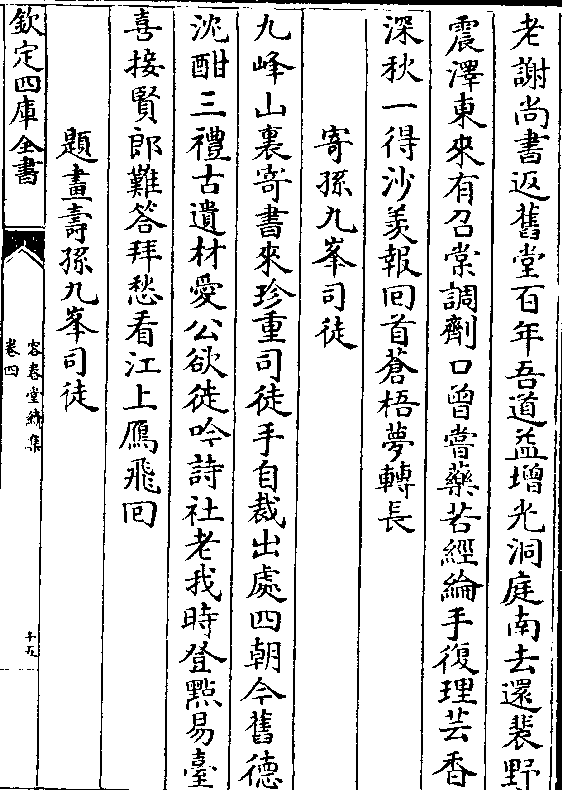 老謝尚書返舊堂百年吾道益增光洞庭南去還裴野
震澤東來有召棠調劑口曾嘗藥苦經綸手復理芸香
深秋一得沙羡報回首蒼梧夢轉長
寄孫九峯司徒
九峰山裏寄書來珍重司徒手自裁出處四朝今舊德
沈酣三禮古遺材愛公欲徒吟詩社老我時登點易臺
喜接賢郎難答拜愁看江上鴈飛回
題畫壽孫九峯司徒
欽定四庫全書
容春堂續集
卷四
十五